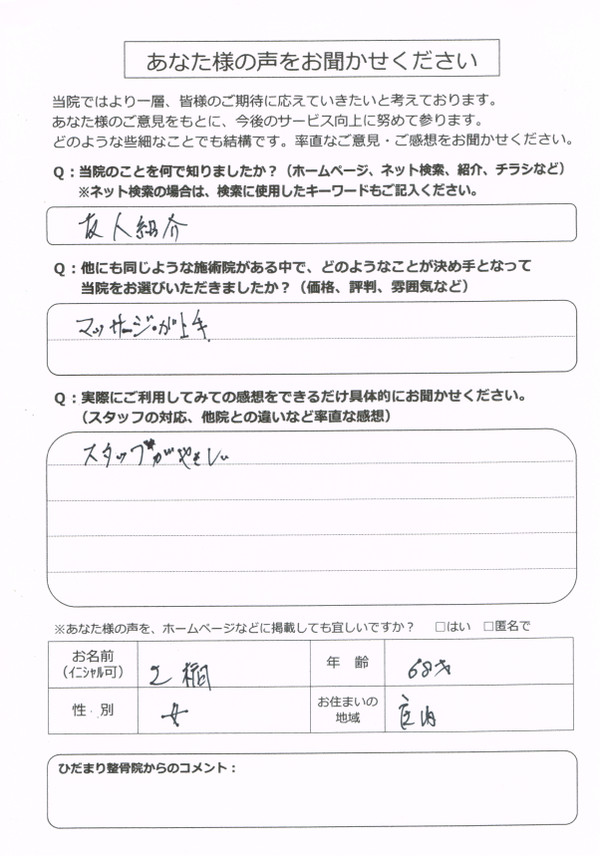 あなた様の声をお聞かせください
当院ではより一層、皆様のご期待に応えていきたいと考えております。
あなた様のご意見をもとに、今後のサービス向上に努めて参ります。
どのような些細なことでも結構です。率直なご意見・ご感想をお聞かせください。
Q：当院のことを何で知りましたか？（ホームページ、ネット検索、紹介、チラシなど）
※ネット検索の場合は、検索に使用したキーワードもご記入ください。
友人紹介
Q：他にも同じような施術院がある中で、どのようなことが決め手となって
当院をお選びいただきましたか？（価格、評判、雰囲気など）
マッサージが上手
Q：実際にご利用してみての感想をできるだけ具体的にお聞かせください。
（スタッフの対応、他院との違いなど率直な感想）
スタッフがやさしい
※あなた様の声を、ホームページなどに掲載しても宜しいですか？ □はい □匿名で
お名前
（ｲﾆｼｬﾙ可）
年 齢 68才
性 別 女
お住まいの
地域
ひだまり整骨院からのコメント：